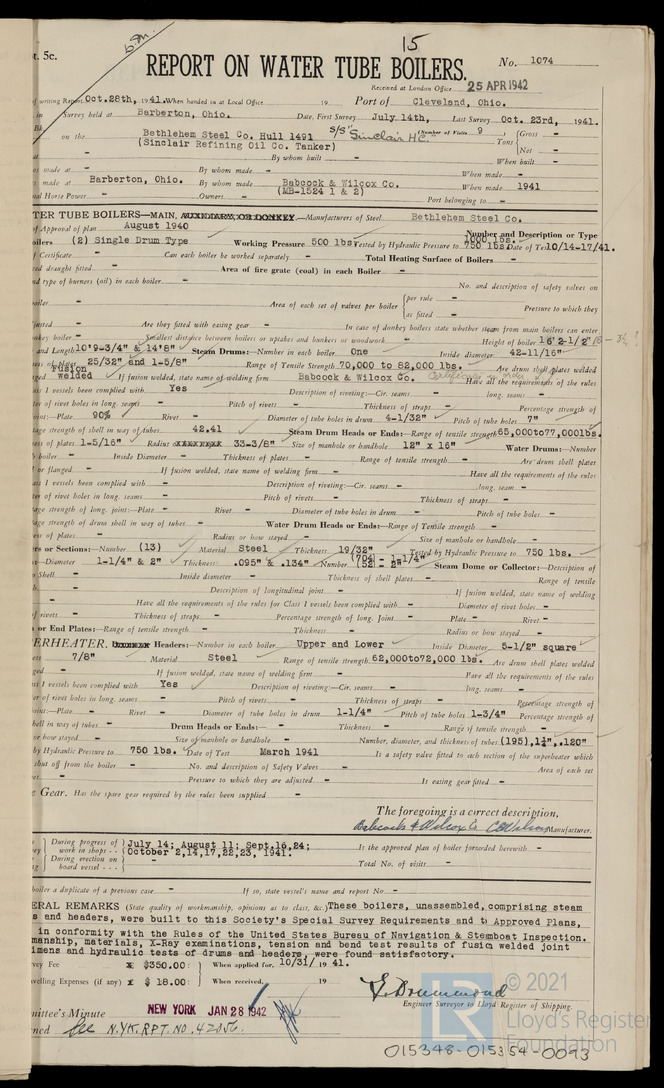 t. 5c.
15
REPORT ON WATER TUBE BOILERS.
No. 1074
Received at London Office 25 APR 1942
of writing Report Oct.28th, 1941. When handed in at Local Office 19 Port of Cleveland, Ohio.
Survey held at Barberton, Ohio. Date, First Survey July 14th, Last Survey Oct. 23rd, 1941.
on the Bethlehem Steel Co. Hull 1491 S/S "Sinclair H.C. (Number of Visits 9) Tons {Gross -
(Sinclair Refining Oil Co. Tanker) Net -
at - By whom built - When built -
made at - By whom made - When made -
made at Barberton, Ohio. By whom made Babcock & Wilcox Co. When made 1941
nal Horse Power - Owners - (MB-1524 1 & 2) Port belonging to -
TER TUBE BOILERS—MAIN, AUXILIARY, OR DONKEY.—Manufacturers of Steel Bethlehem Steel Co.
of Approval of plan August 1940 Number and Description or Type
oilers (2) Single Drum Type Working Pressure 500 lbs. Tested by Hydraulic Pressure to 1000 lbs. 750 lbs. Date of Test 10/14-17/41.
Certificate - Can each boiler be worked separately - Total Heating Surface of Boilers -
ed draught fitted - Area of fire grate (coal) in each Boiler -
nd type of burners (oil) in each boiler - No. and description of safety valves on
boiler - Area of each set of valves per boiler {per rule - Pressure to which they
as fitted -
justed - Are they fitted with easing gear - In case of donkey boilers state whether steam from main boilers can enter
nkey boiler - Smallest distance between boilers or uptakes and bunkers or woodwork - Height of boiler 16'2-1/2"
and Length 10'9-3/4" & 14'8" Steam Drums:—Number in each boiler One Inside diameter 42-11/16"
ss of plates 25/32" and 1-5/8" Range of Tensile Strength 70,000 to 82,000 lbs. Are drum shell plates welded
Fusion Welded If fusion welded, state name of welding firm Babcock & Wilcox Co. Have all the requirements of the rules
s I vessels been complied with Yes Description of riveting:—Cir. seams - long. seams -
ter of rivet holes in long. seams - Pitch of rivets - Thickness of straps - Percentage strength of
joint:—Plate 90% Rivet - Diameter of tube holes in drum 4-1/32" Pitch of tube holes 7"
age strength of shell in way of tubes 42.41 Steam Drum Heads or Ends:—Range of tensile strength 65,000to77,000lbs.
s of plates 1-5/16" Radius 33-3/8" Size of manhole or handhole 12" x 16" Water Drums:—Number
boiler - Inside Diameter - Thickness of plates - Range of tensile strength - Are drum shell plates
or flanged - If fusion welded, state name of welding firm - Have all the requirements of the rules
ss I vessels been complied with - Description of riveting:—Cir. seams - long. seam -
er of rivet holes in long. seams - Pitch of rivets - Thickness of straps -
age strength of long. joint:—Plate - Rivet - Diameter of tube holes in drum - Pitch of tube holes -
ge strength of drum shell in way of tubes - Water Drum Heads or Ends:—Range of Tensile strength -
ss of plates - Radius or how stayed - Size of manhole or handhole -
rs or Sections:—Number (13) Material Steel Thickness 19/32" Tested by Hydraulic Pressure to 750 lbs.
:—Diameter 1-1/4" & 2" Thickness .095" & .134" Number (704) - 1-1/4" (52) - 2" Steam Dome or Collector:—Description of
o Shell - Inside diameter - Thickness of shell plates - Range of tensile
h - Description of longitudinal joint - If fusion welded, state name of welding
Have all the requirements of the rules for Class I vessels been complied with - Diameter of rivet holes -
f rivets - Thickness of straps - Percentage strength of long. Joint - Plate - Rivet -
or End Plates:—Range of tensile strength - Thickness - Radius or how stayed -
ERHEATER. Headers:—Number in each boiler Upper and Lower Inside Diameter 5-1/2" square
ess 7/8" Material Steel Range of tensile strength 62,000to72,000 lbs. Are drum shell plates welded
ged - If fusion welded, state name of welding firm - Have all the requirements of the rules
ss I vessels been complied with Yes Description of riveting:—Cir. seams - long. seams -
er of rivet holes in long. seams - Pitch of rivets - Thickness of straps - Percentage strength of
oint:—Plate - Rivet - Diameter of tube holes in drum 1-1/4" Pitch of tube holes 1-3/4" Percentage strength of
hell in way of tubes - Drum Heads or Ends:—Thickness - Range of tensile strength -
or how stayed - Size of manhole or handhole - Number, diameter, and thickness of tubes (195),1¼",.120"
by Hydraulic Pressure to 750 lbs. Date of Test March 1941 Is a safety valve fitted to each section of the superheater which
shut off from the boiler - No. and description of Safety Valves - Area of each set
es. - Pressure to which they are adjusted - Is easing gear fitted -
e Gear. Has the spare gear required by the rules been supplied -
The foregoing is a correct description,
Babcock & Wilcox Co Manufacturer.
During progress of work in shops - - July 14; August 11; Sept.16,24; October 2,14,17,22,23, 1941. Is the approved plan of boiler forwarded herewith -
During erection on board vessel - - - Total No. of visits -
boiler a duplicate of a previous case - If so, state vessel's name and report No -
ERAL REMARKS (State quality of workmanship, opinions as to class, &c.) These boilers, unassembled, comprising steam
s and headers, were built to this Society's Special Survey Requirements and to Approved Plans,
in conformity with the Rules of the United States Bureau of Navigation & Steamboat Inspection.
manship, materials, X-Ray examinations, tension and bend test results of fusion welded joint
imens and hydraulic tests of drums and headers, were found satisfactory.
vey Fee x $350.00 : When applied for, 10/31/1941.
velling Expenses (if any) x $ 18.00 : When received, 19
Drummond
Engineer Surveyor to Lloyd's Register of Shipping.
mittee's Minute NEW YORK JAN 28 1942
ned See N.YK. RPT. NO. 42056.
© 2021
Lloyd's Register
Foundation
015348-015354-0093